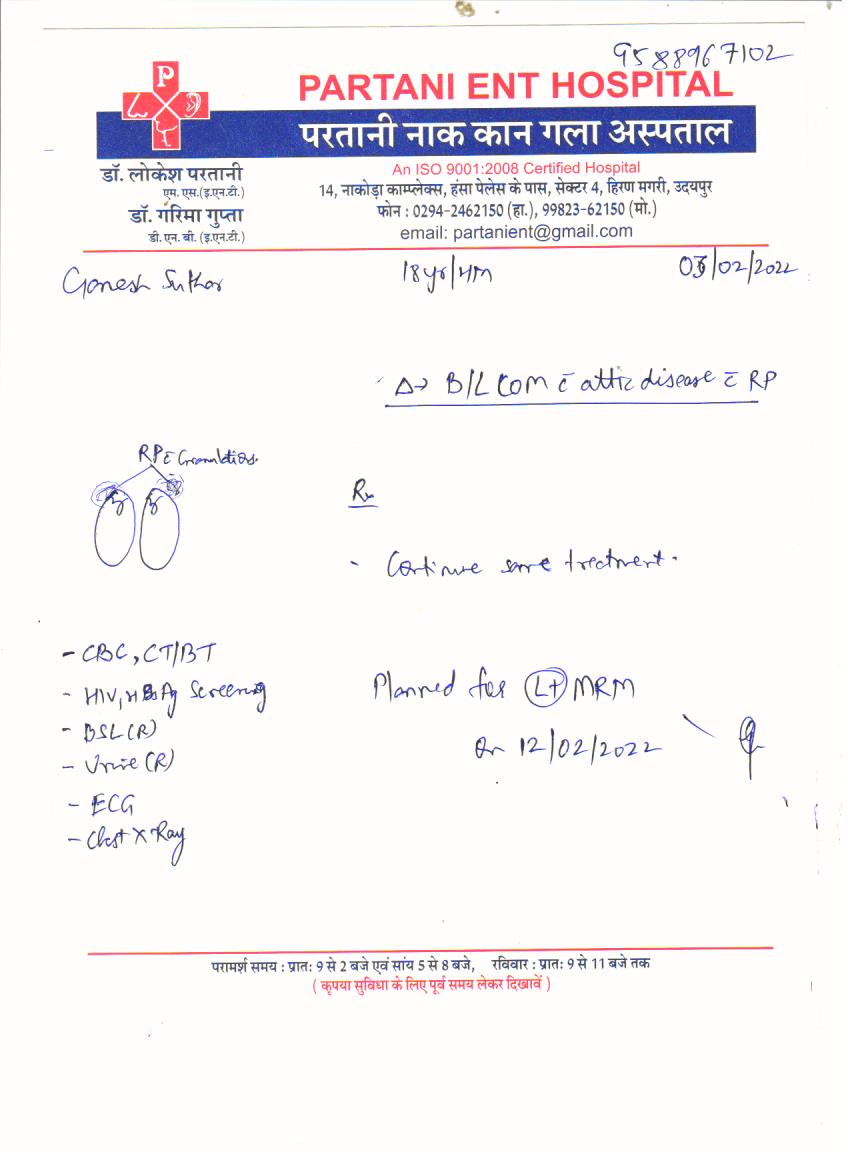 9588967102
P
PARTANI ENT HOSPITAL
परतानी नाक कान गला अस्पताल
डॉ. लोकेश परतानी
एम. एस.(इ.एन.टी.)
डॉ. गरिमा गुप्ता
डी. एन. बी. (इ.एन.टी.)
An ISO 9001:2008 Certified Hospital
14, नाकोड़ा काम्प्लेक्स, हंसा पेलेस के पास, सेक्टर 4, हिरण मगरी, उदयपुर
फोन : 0294-2462150 (हा.), 99823-62150 (मो.)
email: partanient@gmail.com
Ganesh Suthar 18yr/M /02/2022
Δ→ B/L COM c̄ attic disease c̄ RP
RP c̄ Granulations.
Rx
- Continue same treatment.
- CBC, CT/BT
- HIV, HBsAg Screening
- BSL (R)
- Urine (R)
- ECG
- Chest X Ray
Planned for Lt MRM
On 12/02/2022
परामर्श समय : प्रातः 9 से 2 बजे एवं सांय 5 से 8 बजे, रविवार : प्रातः 9 से 11 बजे तक
( कृपया सुविधा के लिए पूर्व समय लेकर दिखावें )